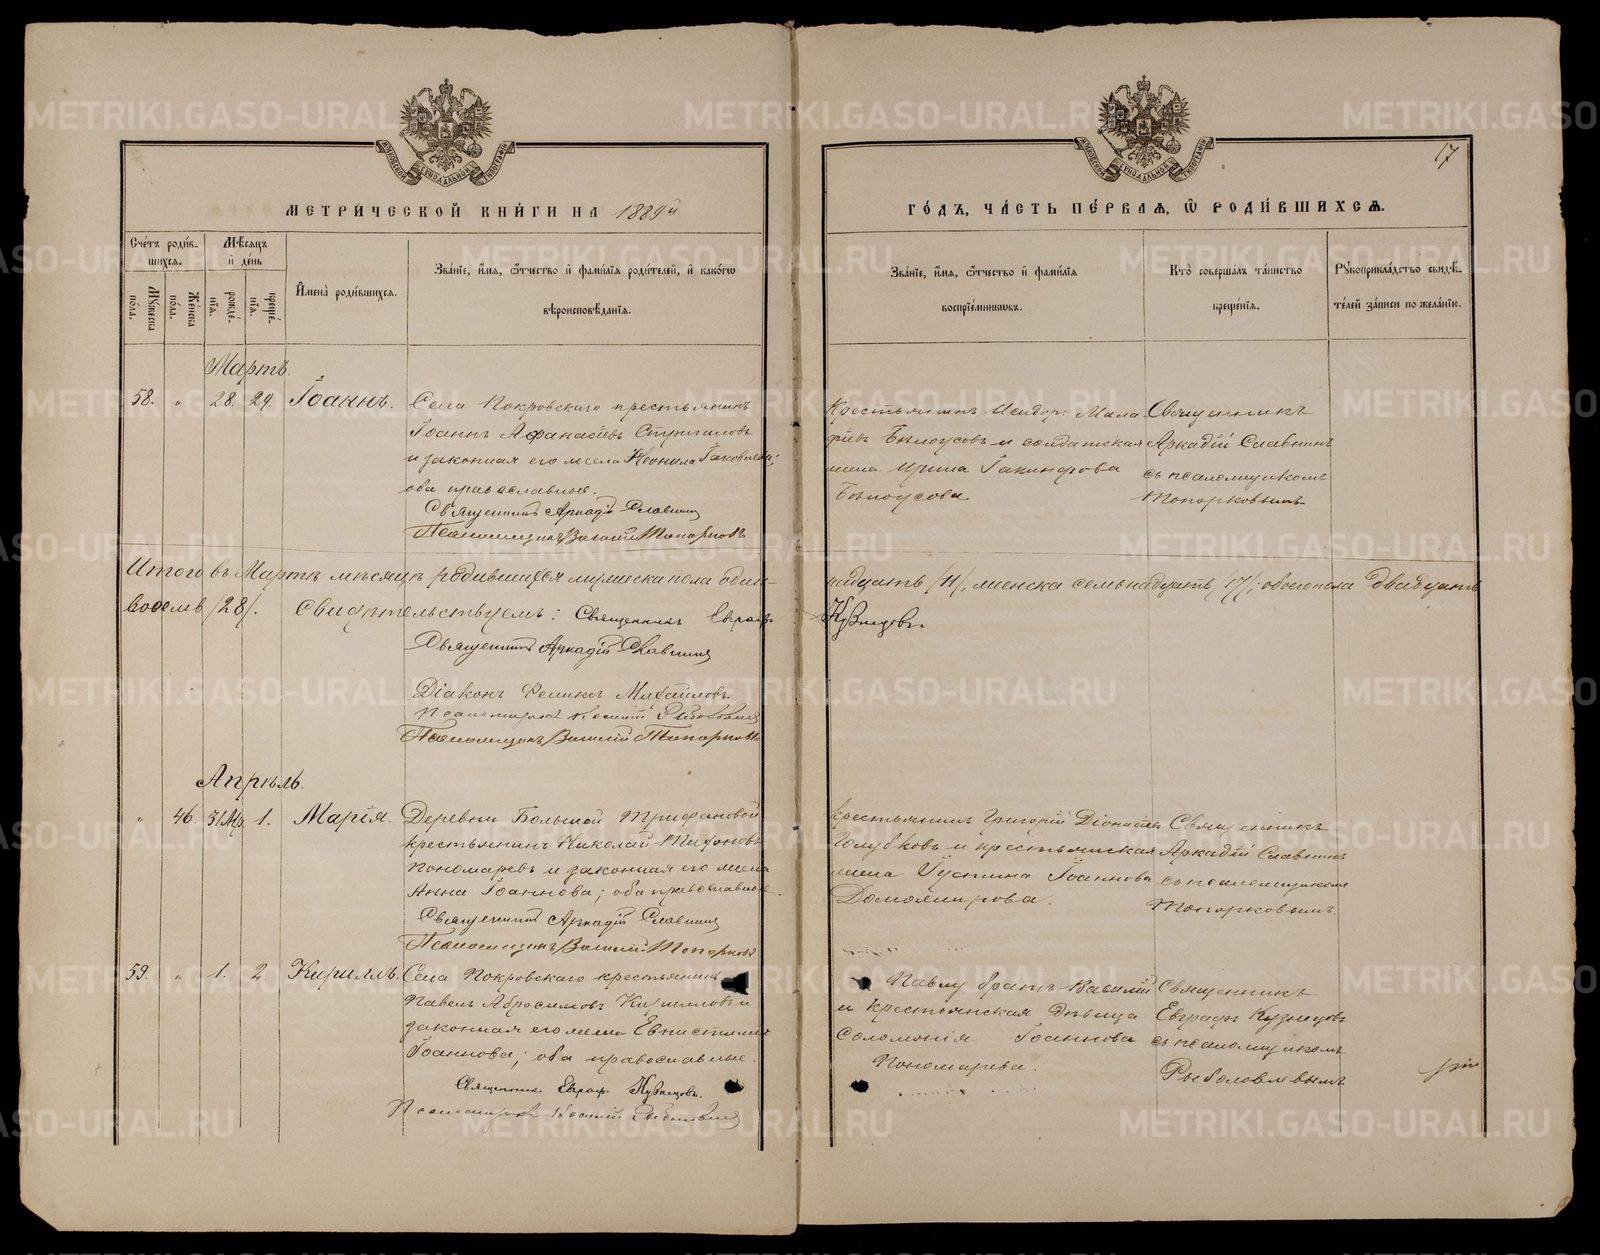 МЕТРИ́ЧЕСКОЙ КНИ́ГИ НА 1889й
ГО́ДЪ, ЧА́СТЬ ПЕ́РВАѦ, Ѽ РОДИ́ВШИХСѦ.
17
Сче́тъ роди́в-
шихсѧ.
Мꙋжеска пола.
Же́нска пола.
Мѣ́сѧцъ
и҆ де́нь
рожде́-
нїѧ.
креще́-
нїѧ.
И҆мена̀ роди́вшихсѧ.
Зва́нїе, и҆́мѧ, ѻ҆́тчество и҆ фами́лїѧ роди́телей, и҆ како́гѡ
вѣроисповѣ́данїѧ.
Зва́нїе, и҆́мѧ, ѻ҆́тчество и҆ фами́лїѧ
воспрїе́мникѡвъ.
Кто̀ соверша́лъ та́инство
креще́нїѧ.
Рꙋкоприкла́дство свидѣ́-
телей за́писи по жела́нїю.
Мартъ.
58. " 28. 29. Іоаннъ.
Села Покровскаго крестьянинъ
Іоаннъ Аѳанасіевъ Стригановъ
и законная его жена Неонила Іаковлева;
оба православные.
Священникъ Аркадій Славнинъ
Псаломщикъ Василій Топорковъ
Крестьянинъ Исидоръ Мала-
фіевъ Бѣлоусовъ и солдатская
жена Ирина Іакинфова
Бѣлоусова
Священникъ
Аркадій Славнинъ
съ псаломщикомъ
Топорковымъ
Итого въ Мартѣ мѣсяцѣ родившихся мужеска пола один-
надцать /11/, женска семьнадцать /17/; обоего пола двадцать
восемь /28/. Свидѣтельствуемъ: Священникъ Евграфъ
Кузнецовъ.
Священникъ Аркадій Славнинъ
Діаконъ Феликсъ Михайловъ
Псаломщикъ Василій Топорковъ
Апрѣль.
" 46. 31 Мр. 1. Марія.
Деревни Большой Трифановой
крестьянинъ Николай Тихоновъ
Пономаревъ и законная его жена
Анна Іоаннова; оба православные.
Священникъ Аркадій Славнинъ
Псаломщикъ Василій Топорковъ
крестьянинъ Григорій Діонисіевъ
Голубковъ и крестьянская
жена Іустина Іоаннова
Доможирова.
Священникъ
Аркадій Славнинъ
со псаломщикомъ
Топорковымъ.
59. " 1. 2 Кириллъ.
Села Покровскаго крестьянинъ
Павелъ Абросимовъ Кирилловъ и
законная его жена Евпистимія
Іоаннова; оба православные.
Священникъ Евграфъ Кузнецовъ.
Павлу братъ Василій
и крестьянская дѣвица
Соломонія Іоаннова
Пономарева.
Священникъ
Евграфъ Кузнецовъ
съ псаломщикомъ
Рыболовлевымъ